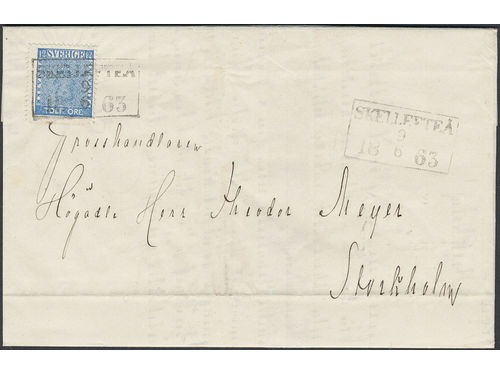 12 SVERIGE 12
SKELLEFTEÅ
9
18 6 63
TOLF ÖRE
SKELLEFTEÅ
9
18 6 63
Grosshandlaren
Högädle Herr Theodor Meyer
Stockholm